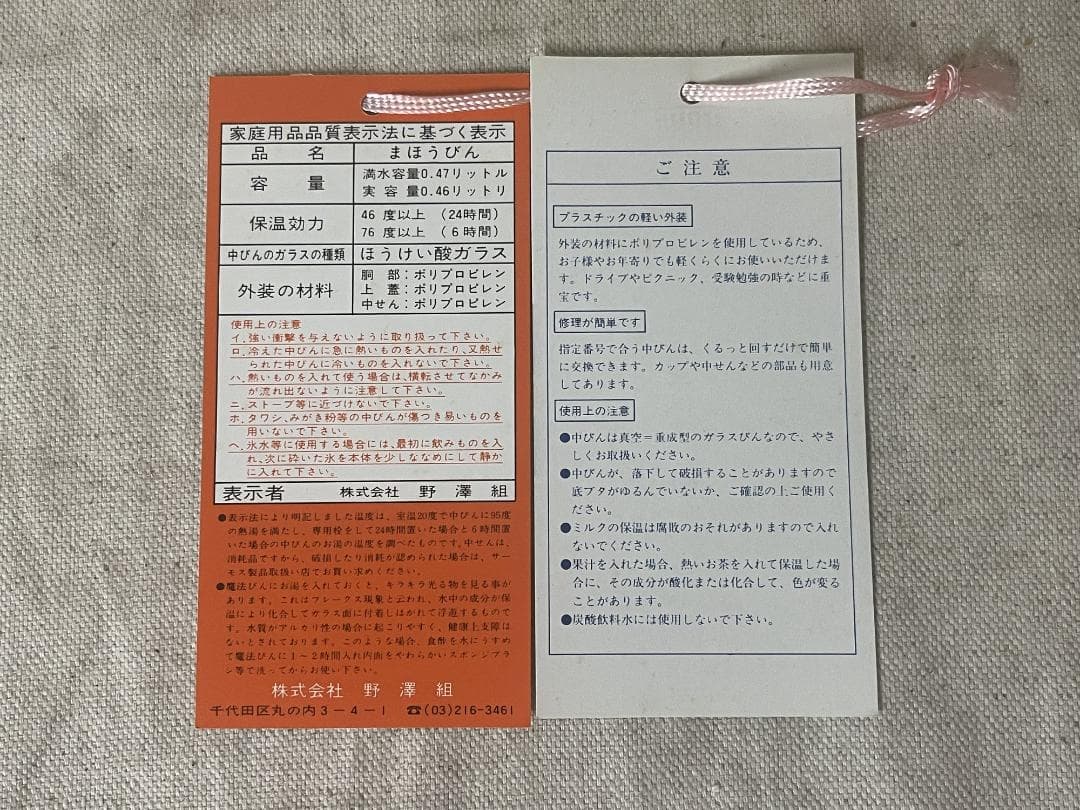 家庭用品品質表示法に基づく表示
品　　名　まほうびん
容　　量　満水容量0.47リットル
実 容 量0.46リットリ
保温効力　46 度以上 （24時間）
76 度以上 （ 6 時間）
中びんのガラスの種類　ほうけい酸ガラス
外装の材料　胴　部：ポリプロピレン
上　蓋：ポリプロピレン
中せん：ポリプロピレン
使用上の注意
イ．強い衝撃を与えないように取り扱って下さい。
ロ．冷えた中びんに急に熱いものを入れたり、又熱せ
られた中びんに冷いものを入れないで下さい。
ハ．熱いものを入れて使う場合は、横転させてなかみ
が流れ出ないように注意して下さい。
ニ．ストーブ等に近づけないで下さい。
ホ．タワシ、みがき粉等の中びんが傷つき易いものを
用いないで下さい。
ヘ．氷水等に使用する場合には、最初に飲みものを入
れ、次に砕いた氷を本体を少しななめにして静か
に入れて下さい。
表示者　株式会社　野　澤　組
●表示法により明記しました温度は、室温20度で中びんに95度
の熱湯を満たし、専用栓をして24時間置いた場合と6時間置
いた場合の中びんのお湯の温度を調べたものです。中せんは、
消耗品ですから、破損したり消耗が認められた場合は、サー
モス製品取扱い店でお買い求めください。
●魔法びんにお湯を入れておくと、キラキラ光る物を見る事が
あります。これはフレークス現象と云われ、水中の成分が保
温により化合してガラス面に付着しはがれて浮遊するもので
す。水質がアルカリ性の場合に起こりやすく、健康上支障は
ないとされております。このような場合、食酢を水にうすめ
て魔法びんに1〜2時間入れ内面をやわらかいスポンジブラ
シ等で洗ってからお使い下さい。
株式会社　野　澤　組
千代田区丸の内3－4－1　☎(03)216-3461
ご 注 意
プラスチックの軽い外装
外装の材料にポリプロピレンを使用しているため、
お子様やお年寄りでも軽くらくにお使いいただけま
す。ドライブやピクニック、受験勉強の時などに重
宝です。
修理が簡単です
指定番号で合う中びんは、くるっと回すだけで簡単
に交換できます。カップや中せんなどの部品も用意
してあります。
使用上の注意
●中びんは真空＝重成型のガラスびんなので、やさ
しくお取扱いください。
●中びんが、落下して破損することがありますので
底ブタがゆるんでいないか、ご確認の上ご使用く
ださい。
●ミルクの保温は腐敗のおそれがありますので入れ
ないでください。
●果汁を入れた場合、熱いお茶を入れて保温した場
合に、その成分が酸化または化合して、色が変る
ことがあります。
●炭酸飲料水には使用しないで下さい。